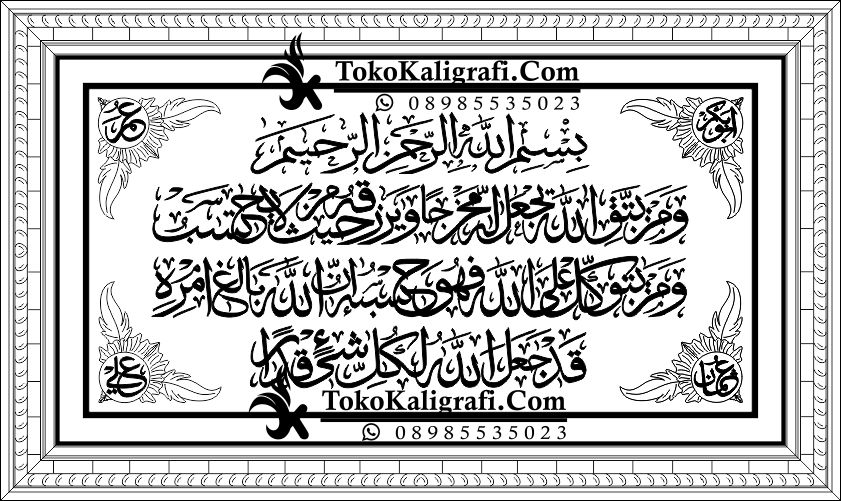 TokoKaligrafi.Com
08985535023
عمر
ابوبكر
بِسْمِ اللهِ الرَّحْمٰنِ الرَّحِيْمِ
وَمَنْ يَتَّقِ اللهَ يَجْعَلْ لَهُ مَخْرَجًا وَيَرْزُقْهُ مِنْ حَيْثُ لَا يَحْتَسِبُ
وَمَنْ يَتَوَكَّلْ عَلَى اللهِ فَهُوَ حَسْبُهُ اِنَّ اللهَ بَالِغُ اَمْرِهِ
قَدْ جَعَلَ اللهُ لِكُلِّ شَيْئٍ قَدْرًا
علي
عثمان
TokoKaligrafi.Com
08985535023